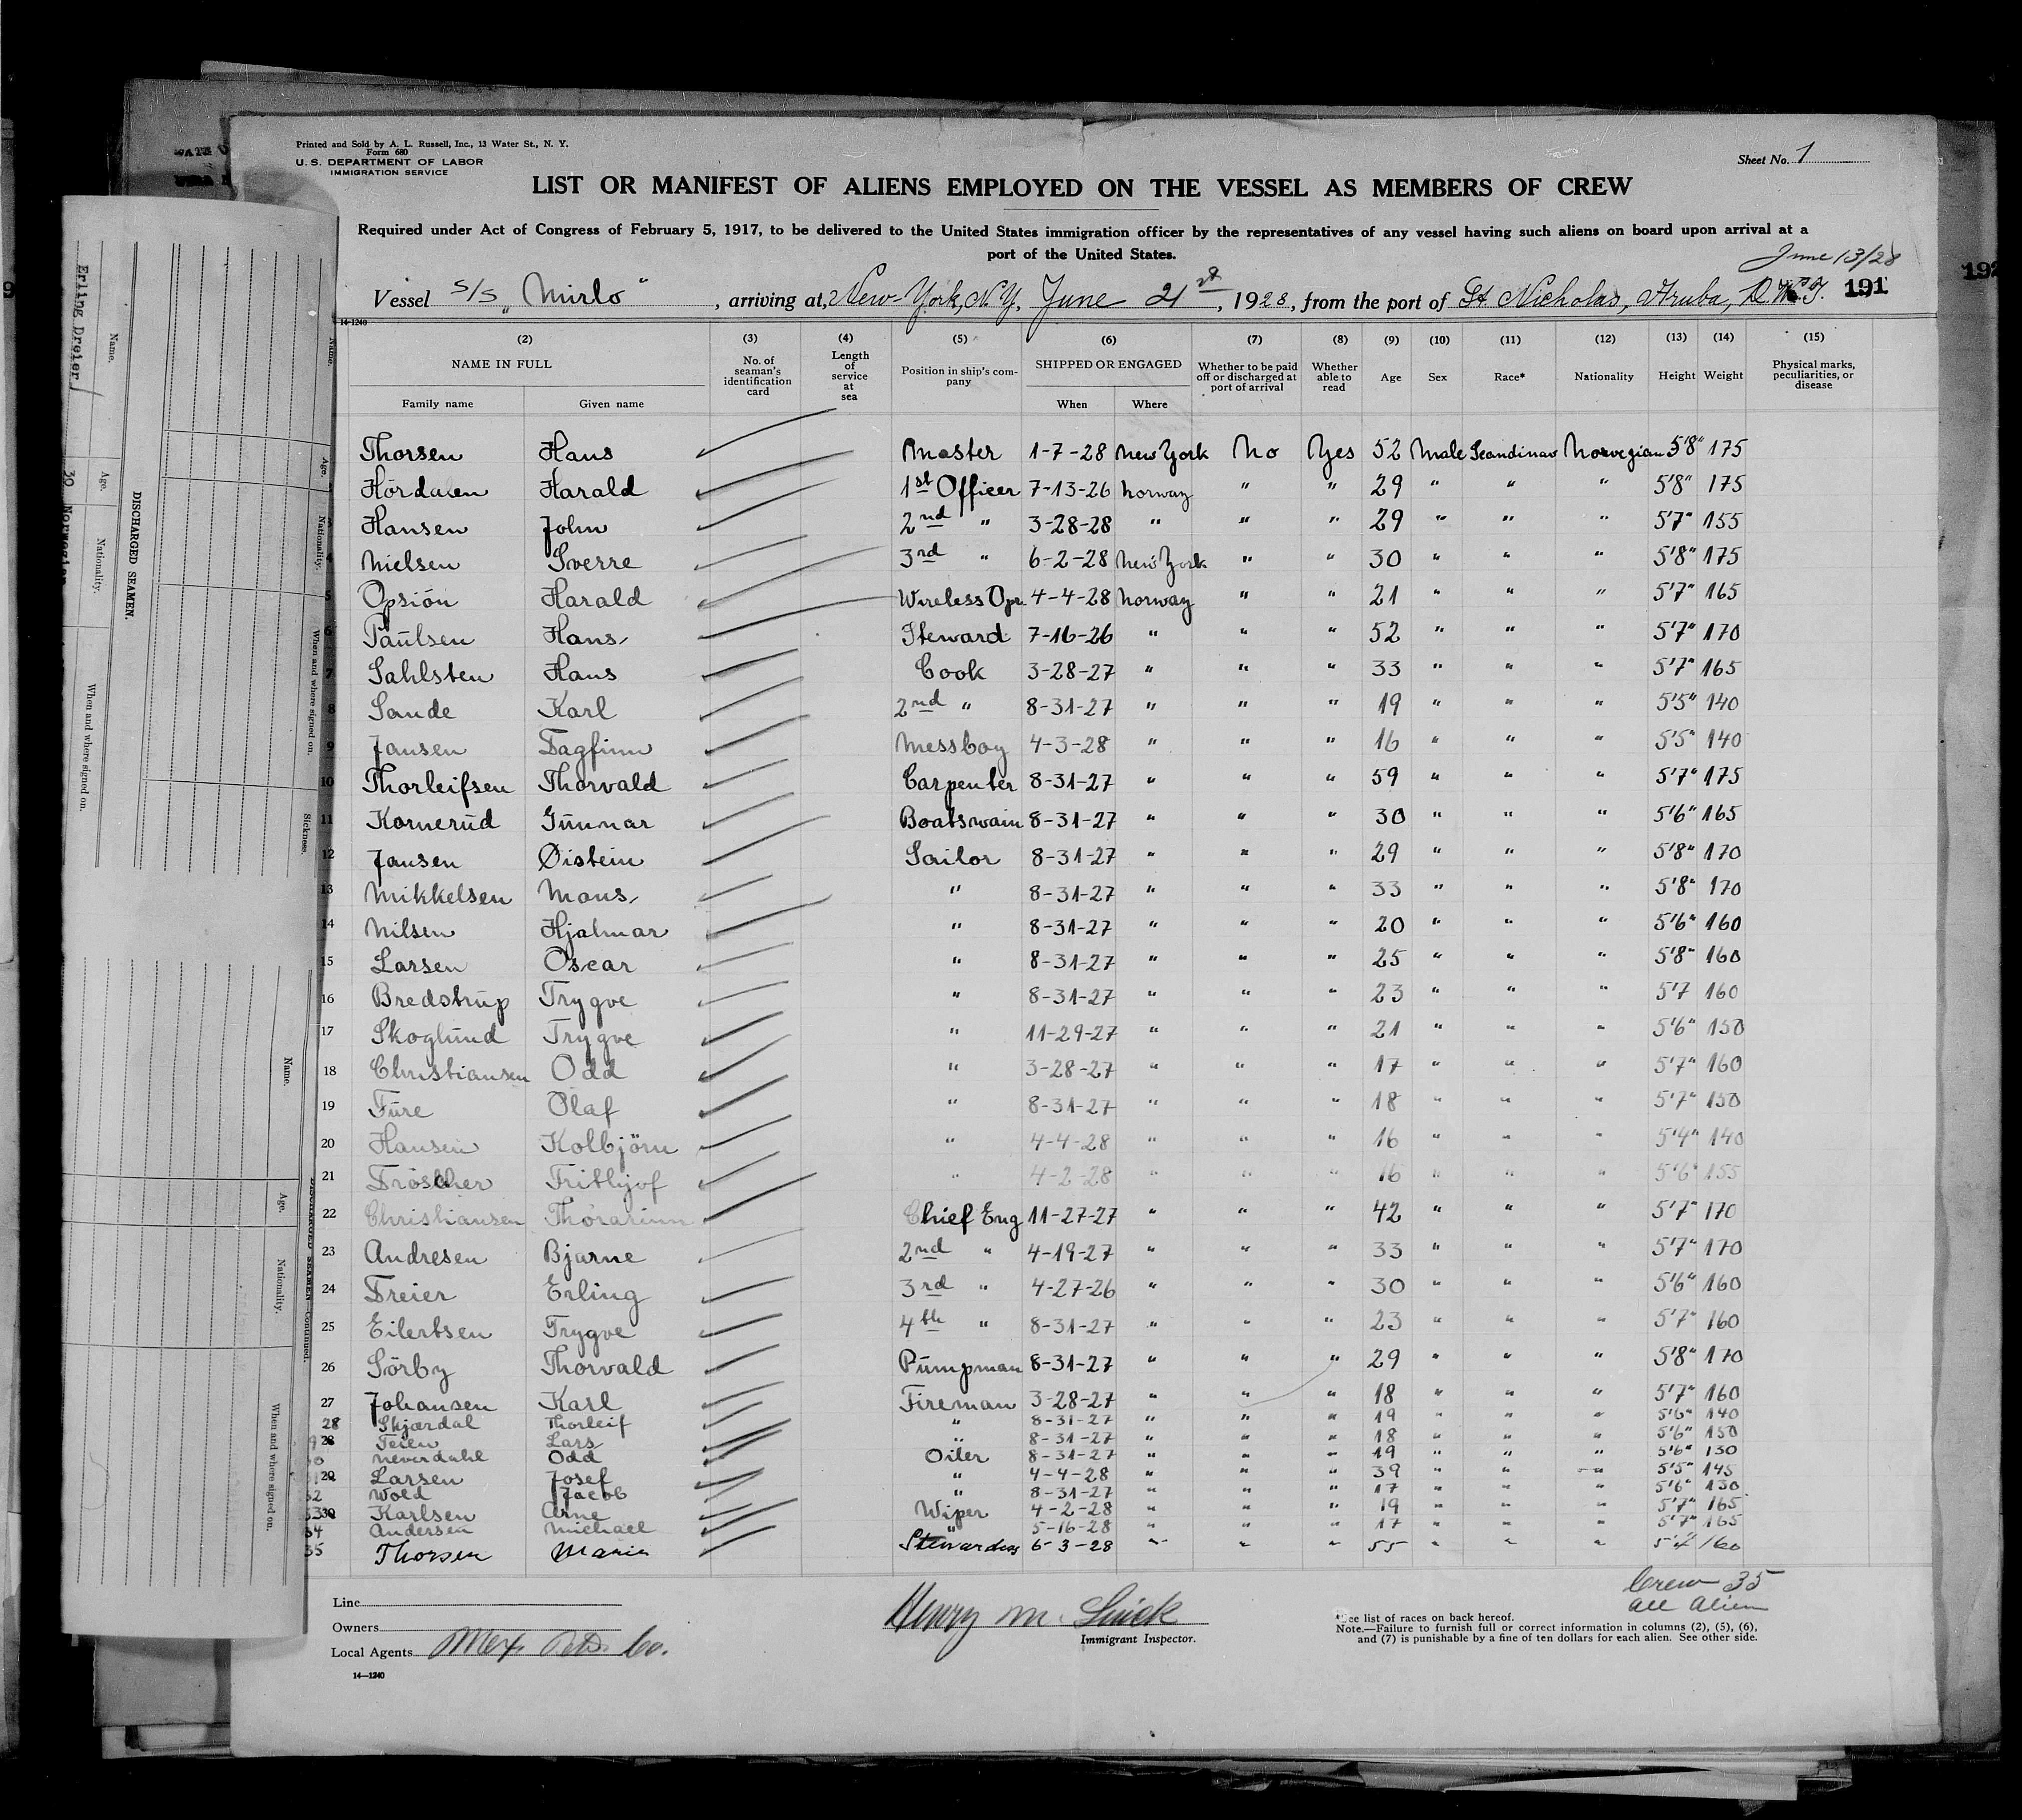 Printed and Sold by A. L. Russell, Inc., 13 Water St., N. Y.
Form 680
U. S. DEPARTMENT OF LABOR
IMMIGRATION SERVICE
Sheet No. 1
LIST OR MANIFEST OF ALIENS EMPLOYED ON THE VESSEL AS MEMBERS OF CREW
Required under Act of Congress of February 5, 1917, to be delivered to the United States immigration officer by the representatives of any vessel having such aliens on board upon arrival at a
port of the United States.
June 13/28
Vessel S/S "Mirlo", arriving at, New-York, N.Y. June 21st, 1928, from the port of St. Nicholas, Aruba, 191
14-1240
(2) (3) (4) (5) (6) (7) (8) (9) (10) (11) (12) (13) (14) (15)
NAME IN FULL No. of seaman's identification card Length of service at sea Position in ship's company SHIPPED OR ENGAGED Whether to be paid off or discharged at port of arrival Whether able to read Age Sex Race* Nationality Height Weight Physical marks, peculiarities, or disease
Family name Given name When Where
Thorsen Hans Master 1-7-28 New York No Yes 52 Male Scandinav Norwegian 5'8" 175
Hördalen Harald 1st Officer 7-13-26 Norway " " 29 " " " 5'8" 175
Hansen John 2nd " 3-28-28 " " " 29 " " " 5'7" 155
4 Nielsen Sverre 3rd " 6-2-28 New York " " 30 " " " 5'8" 175
5 Opsión Harald Wireless Opr. 4-4-28 Norway " " 21 " " " 5'7" 165
6 Paulsen Hans Steward 7-16-26 " " " 52 " " " 5'7" 170
7 Sahlsten Hans Cook 3-28-27 " " " 33 " " " 5'7" 165
8 Sande Karl 2nd " 8-31-27 " " " 19 " " " 5'5" 140
9 Jansen Dagfinn Messboy 4-3-28 " " " 16 " " " 5'5" 140
10 Thorleifsen Thorvald Carpenter 8-31-27 " " " 59 " " " 5'7" 175
11 Kornerud Gunnar Boatswain 8-31-27 " " " 30 " " " 5'6" 165
12 Jansen Øistein Sailor 8-31-27 " " " 29 " " " 5'8" 170
13 Mikkelsen Mons " 8-31-27 " " " 33 " " " 5'8" 170
14 Nilsen Hjalmar " 8-31-27 " " " 20 " " " 5'6" 160
15 Larsen Oscar " 8-31-27 " " " 25 " " " 5'8" 160
16 Bredstrup Trygve " 8-31-27 " " " 23 " " " 5'7 160
17 Skoglund Trygve " 11-29-27 " " " 21 " " " 5'6" 150
18 Christiansen Odd " 3-28-27 " " " 17 " " " 5'7" 160
19 Fure Olaf " 8-31-27 " " " 18 " " " 5'7" 150
20 Hansen Kolbjörn " 4-4-28 " " " 16 " " " 5'4" 140
21 Dröscher Frithjof " 4-2-28 " " " 16 " " " 5'6" 155
22 Christiansen Thorarinn Chief Eng 11-27-27 " " " 42 " " " 5'7" 170
23 Andresen Bjarne 2nd " 4-19-27 " " " 33 " " " 5'7" 170
24 Dreier Erling 3rd " 4-27-26 " " " 30 " " " 5'6" 160
25 Eilertsen Trygve 4th " 8-31-27 " " " 23 " " " 5'7" 160
26 Sörby Thorvald Pumpman 8-31-27 " " " 29 " " " 5'8" 170
27 Johansen Karl Fireman 3-28-27 " " " 18 " " " 5'7" 160
28 Skjærdal Thorleif " 8-31-27 " " " 19 " " " 5'6" 140
Teien Lars " 8-31-27 " " " 18 " " " 5'6" 150
Neverdahl Odd Oiler 8-31-27 " " " 19 " " " 5'6" 130
Larsen Josef " 4-4-28 " " " 39 " " " 5'5" 145
32 Wold Jacob " 8-31-27 " " " 17 " " " 5'6" 130
33 Karlsen Arne Wiper 4-2-28 " " " 19 " " " 5'7" 165
34 Andersen Michael " 5-16-28 " " " 17 " " " 5'7" 165
35 Thorsen Maria Stewardess 6-3-28 " " " 55 " " " 160
Crew 35
all Alien
Line
Owners
Local Agents Mex Pet. Co.
Henry M.
Immigrant Inspector.
*See list of races on back hereof.
Note.—Failure to furnish full or correct information in columns (2), (5), (6),
and (7) is punishable by a fine of ten dollars for each alien. See other side.
14—1240
DISCHARGED SEAMEN.
Name. Age. Nationality. When and where signed on.
Erling Dreier 30 Norwegian
Name. Age. Nationality. When and where signed on. Sickness.
DISCHARGED SEAMEN—Continued.
Name. Age. Nationality. When and where signed on.
192